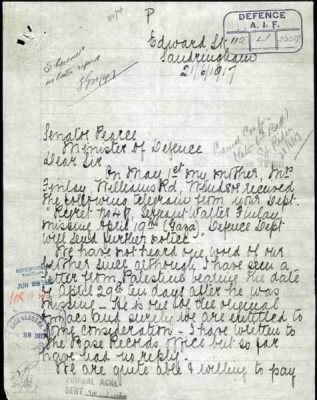 P
DEFENCE
A.I.F.
112
Edward St
Sandringham
21/6/1917
Senator Pearce
Minister of Defence
Dear Sir
On May 1st my mother, Mrs
Finlay Williams Rd, Windsor received
the following telegram from your Dept.
"Regret no 49, Sergeant Walter Finlay
missing April 19th (Gaza) Defence Dept
will send further notice".
We have not heard one word of our
brother since although I have seen a
letter from Palestine bearing the date
of April 29th ten days after he was
missing. As is one of the original
Anzacs and surely we are entitled to
some consideration - I have written to
the Base Records Office but so far
have had no reply.
We are quite able & willing to pay
FORMAL ACK
SENT